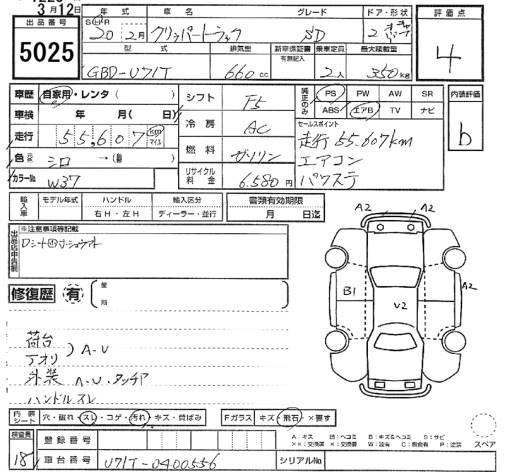 3月12日
出品番号
5025
年式 車名 グレード ドア・形状
S H R
20年2月 クリッパートラック SD 2ドア
型式 排気量 新車保証書 乗車定員 最大積載量
有無記入
GBD-U71T 660cc 2人 350kg
評価点
4
車歴 自家用・レンタ( )
車検 年 月( 日)
走行 55,607 km マイル
色 シロ →( )
カラーNo. W37
シフト F5
冷房 AC
燃料 ガソリン
リサイクル料金 6,580円
純正のみ PS PW AW SR
ABS エアB TV ナビ
セールスポイント
走行55.607km
エアコン
パワステ
内装評価
b
輸入車 モデル年式 ハンドル 輸入区分
右H・左H ディーラー・並行
書類有効期限
月 日迄
※注意事項等記載
修復歴 有
箇所
荷台
アオリ A・U
外装 A・U・タッチア
ハンドルスレ
A2 A2
A2
B1 U2
内装シート 穴・破れ・スレ・コゲ・汚れ・キズ・骨ばみ
Fガラス キズ・飛石・×要す
スペア
検査員
18
登録番号
車台番号 U71T-0400556
シリアルNo.